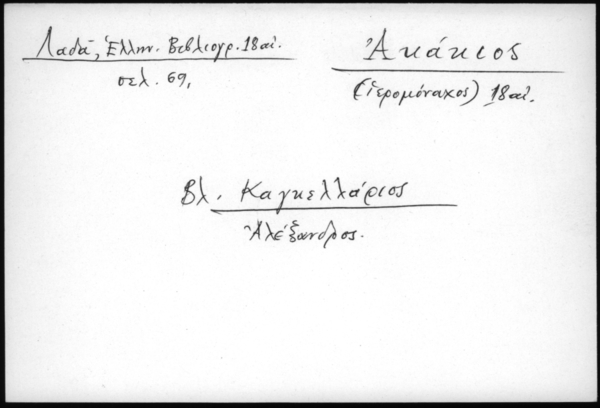 Λαδᾶ, Ἑλλην. Βιβλιογρ. 18 αἰ.
σελ. 69,
Ἀκάκιος
(ἱερομόναχος) 18 αἰ.
Βλ. Καγκελλάριος
Ἀλέξανδρος.